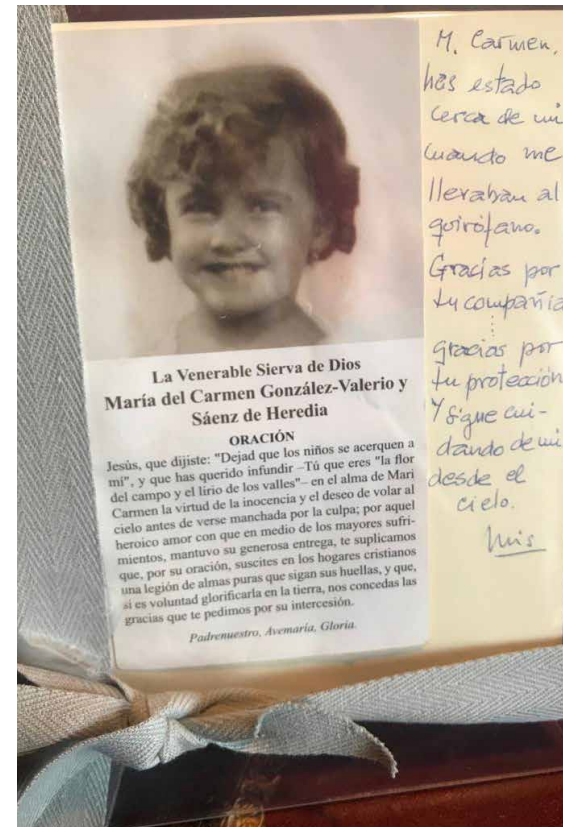 La Venerable Sierva de Dios
María del Carmen González-Valerio y
Sáenz de Heredia
ORACIÓN
Jesús, que dijiste: "Dejad que los niños se acerquen a
mí", y que has querido infundir –Tú que eres "la flor
del campo y el lirio de los valles"– en el alma de Mari
Carmen la virtud de la inocencia y el deseo de volar al
cielo antes de verse manchada por la culpa; por aquel
heroico amor con que en medio de los mayores sufri-
mientos, mantuvo su generosa entrega, te suplicamos
que, por su oración, suscites en los hogares cristianos
una legión de almas puras que sigan sus huellas, y que,
si es voluntad glorificarla en la tierra, nos concedas las
gracias que te pedimos por su intercesión.
Padrenuestro, Avemaría, Gloria.
M. Carmen,
has estado
cerca de mi
cuando me
llevaban al
quirófano.
Gracias por
tu compañía
gracias por
tu protección
Y sigue cui-
dando de mi
desde el
cielo.